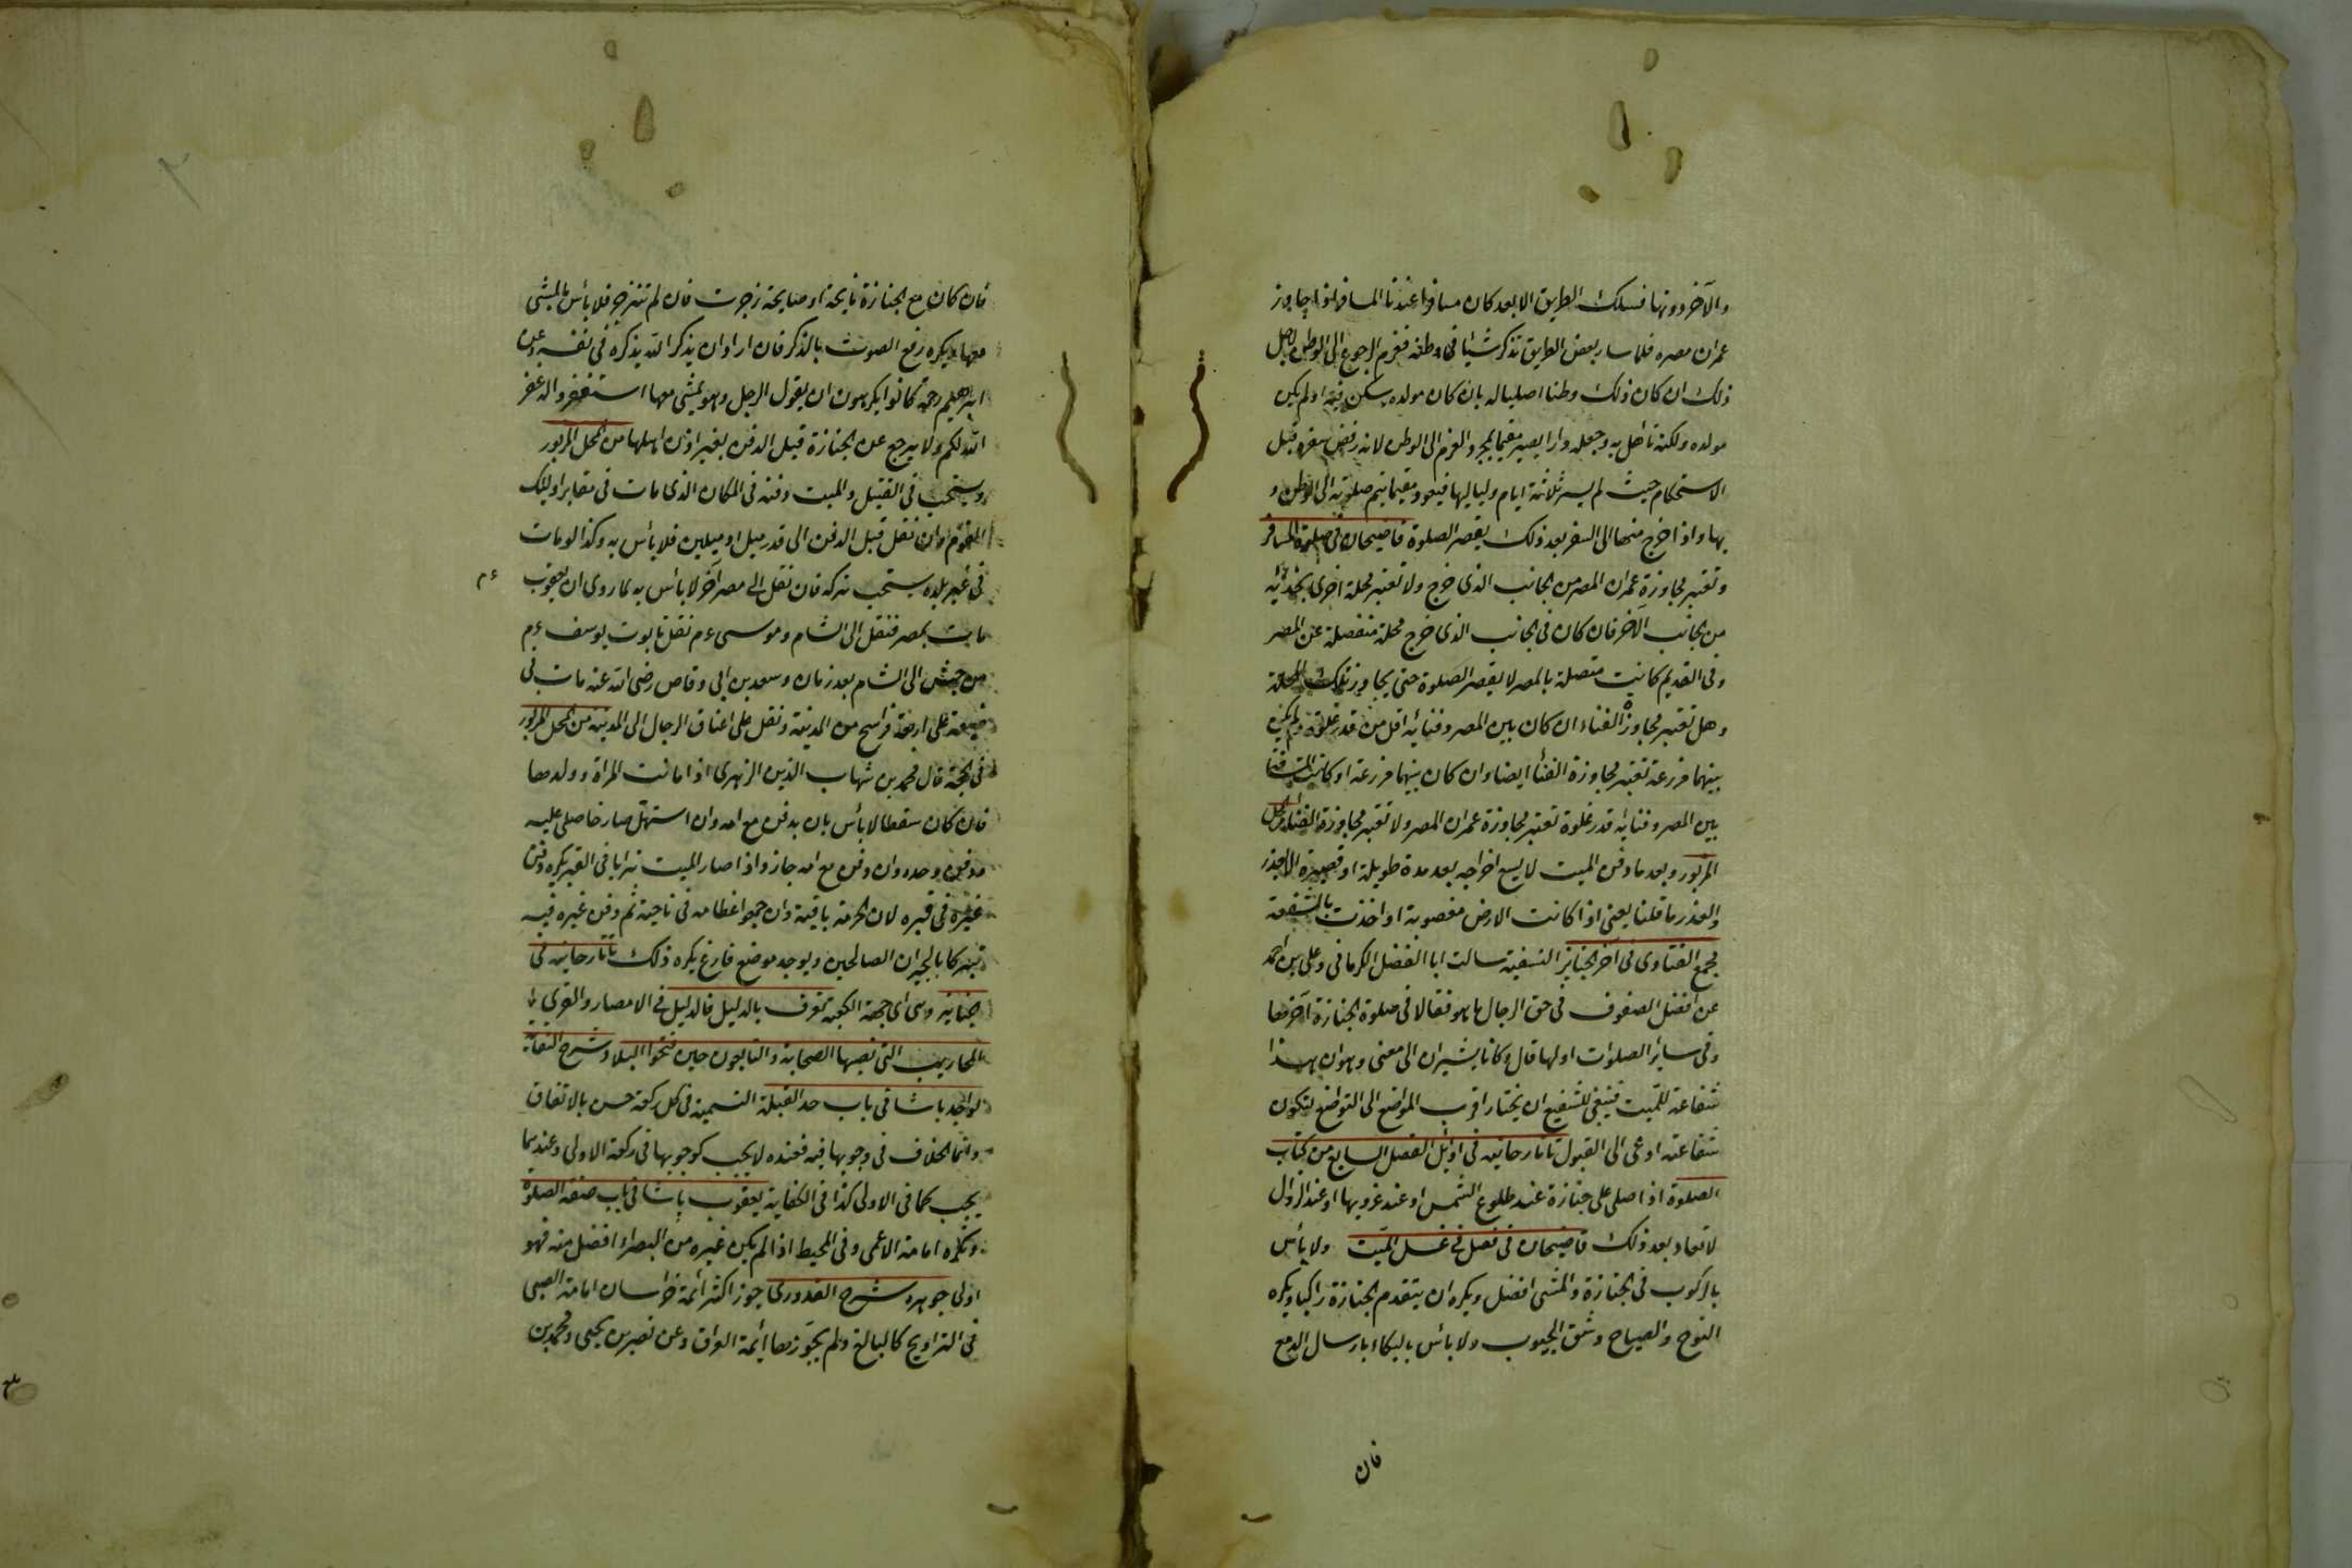 والآخر دونها فسلك الطريق الابعد كان مسافرا عندنا المسافر اذا جاوز
عمران مصره فلما سار بعض الطريق تذكر شيأ في وطنه فعزم الرجوع الى الوطن لاجل
ذلك ان كان ذلك وطنا اصليا له بان كان مولده وسكن فيه او لم يكن
مولده ولكنه تأهل به وجعله دارا يصير مقيما بمجرد العزم الى الوطن لانه رفض سفره قبل
الاستحكام حيث لم يسر ثلاثة ايام ولياليها فيعود مقيما يتم صلوته الى الوطن و
بها واذا خرج منها الى السفر بعد ذلك يقصر الصلوة قاضيخان في صلوة المسافر
وتعتبر مجاوزة عمران المصر من الجانب الذي خرج ولا تعتبر محلة اخرى بحذائه
من الجانب الآخر فان كان في الجانب الذي خرج محلة منفصلة عن المصر
وفي القديم كانت متصلة بالمصر لا يقصر الصلوة حتى يجاوز تلك المحلة
وهل تعتبر مجاوزة الفناء ان كان بين المصر وفنائه اقل من قدر غلوة ولم يكن
بينهما مزرعة تعتبر مجاوزة الفناء ايضا وان كان بينهما مزرعة او كانت المسافة
بين المصر وفنائه قدر غلوة تعتبر مجاوزة عمران المصر ولا تعتبر مجاوزة الفناء من المحل
المزبور وبعد ما دفن الميت لا يسع اخراجه بعد مدة طويلة او قصيرة الا بعذر
والعذر ما قلنا يعني اذا كانت الارض مغصوبة او اخذت بالشفعة
مجمع الفتاوى في آخر الجنايز النسفية سالت ابا الفضل الكرماني وعلي بن احمد
عن افضل الصفوف في حق الرجال ما هو فقالا في صلوة الجنازة آخرها
وفي سائر الصلوات اولها قال وكانا يشيران الى معنى وهو ان هذا
شفاعة للميت فينبغي للشفيع ان يختار اقرب المواضع الى التواضع لتكون
شفاعته ادعى الى القبول تاتارخانيه في اوائل الفصل السابع من كتاب
الصلوة اذا صلى على جنازة عند طلوع الشمس او عند غروبها او عند الزوال
لا تعاد بعد ذلك قاضيخان في فصل في غسل الميت ولا بأس
بالركوب في الجنازة والمشي افضل ويكره ان يتقدم الجنازة راكبا ويكره
النوح والصياح وشق الجيوب ولا بأس بالبكاء بارسال الدمع
فان
فان كان مع الجنازة نايحة او صايحة زجرت فان لم تنزجر فلا بأس بالمشي
معها ويكره رفع الصوت بالذكر فان اراد ان يذكر الله يذكره في نفسه وعن
ابراهيم رحمه كانوا يكرهون ان يقول الرجل وهو يمشي معها استغفروا له غفر
الله لكم ولا يرجع عن الجنازة قبل الدفن بغير اذن اهلها من المحل المزبور
ويستحب في القتيل والميت دفنه في المكان الذي مات في مقابر اوليك
القوم وان نقل قبل الدفن الى قدر ميل او ميلين فلا بأس به وكذا لو مات
في غير بلده يستحب تركه فان نقل الى مصر آخر لا بأس به لما روي ان يعقوب ء م
مات بمصر فنقل الى الشام وموسى ءم نقل تابوت يوسف ءم
من الى الشام بعد زمان وسعد بن ابي وقاص رضى الله عنه مات في
ضيعة على اربعة فراسخ من المدينة ونقل على اعناق الرجال الى المدينة من المحل المزبور
في الحجة قال محمد بن شهاب الدين الزهري اذا ماتت المراة وولدها
فان كان سقطا لا بأس بان يدفن مع امه وان استهل صارخا صلى عليه
ودفن وحده وان دفن مع امه جاز واذا صار الميت ترابا في القبر يكره دفن
غيره في قبره لان الحرمة باقية وان جمعوا عظامه في ناحية ثم دفن غيره فيه
تبركا بالجيران الصالحين ويوجد موضع فارغ يكره ذلك تاتارخانيه في
جنايز وهي اي جهة الكعبة تعرف بالدليل فالدليل في الامصار والقرى
المحاريب التي نصبها الصحابة والتابعون حين فتحوا البلاد شرح النقاية
لواجد باشا في باب حد القبلة التسمية في كل ركعة حسن بالاتفاق
وانما الخلاف في وجوبها فيه فعنده لا يجب كوجوبها في ركعة الاولى وعندهما
يجب كما في الاولى كذا في الكفاية يعقوب باشا في باب صفة الصلوة
ويكره امامة الاعمى وفي المحيط اذا لم يكن غيره من البصراء افضل منه فهو
اولى جوهره شرح القدوري جوز اكثر ائمة خراسان امامة الصبي
في التراويح كالبالغ ولم يجوزها ائمة العراق وعن نصر بن يحيى ومحمد بن